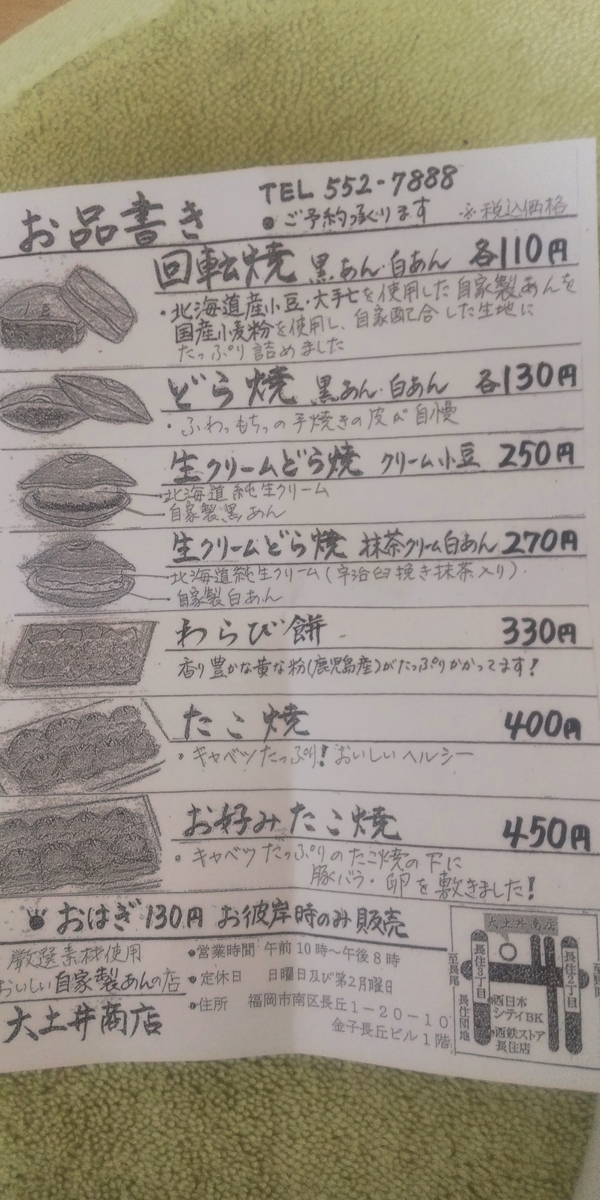 お品書き
TEL 552-7888
●ご予約承ります ※税込価格
回転焼 黒あん・白あん 各110円
・北海道産小豆・大手亡を使用した自家製あんを
国産小麦粉を使用し、自家配合した生地に
たっぷり詰めました
どら焼 黒あん・白あん 各130円
・ふわっもちっの手焼きの皮が自慢
生クリームどら焼 クリーム小豆 250円
北海道純生クリーム
自家製黒あん
生クリームどら焼 抹茶クリーム白あん 270円
北海道純生クリーム(宇治臼挽き抹茶入り)
自家製白あん
わらび餅 330円
香り豊かな黄な粉(鹿児島産)がたっぷりかかってます!
たこ焼 400円
・キャベツたっぷり!おいしいヘルシー
お好みたこ焼 450円
・キャベツたっぷりのたこ焼の下に
豚バラ・卵を敷きました!
おはぎ130円 お彼岸時のみ販売
厳選素材使用
おいしい自家製あんの店
大土井商店
●営業時間 午前10時〜午後8時
●定休日 日曜日及び第2月曜日
●住所 福岡市南区長丘1-20-10
金子長丘ビル1階
大土井商店
至長尾
長住3丁目
長住団地
●西日本
シティBK
●西鉄ストア
長住店
長住2丁目